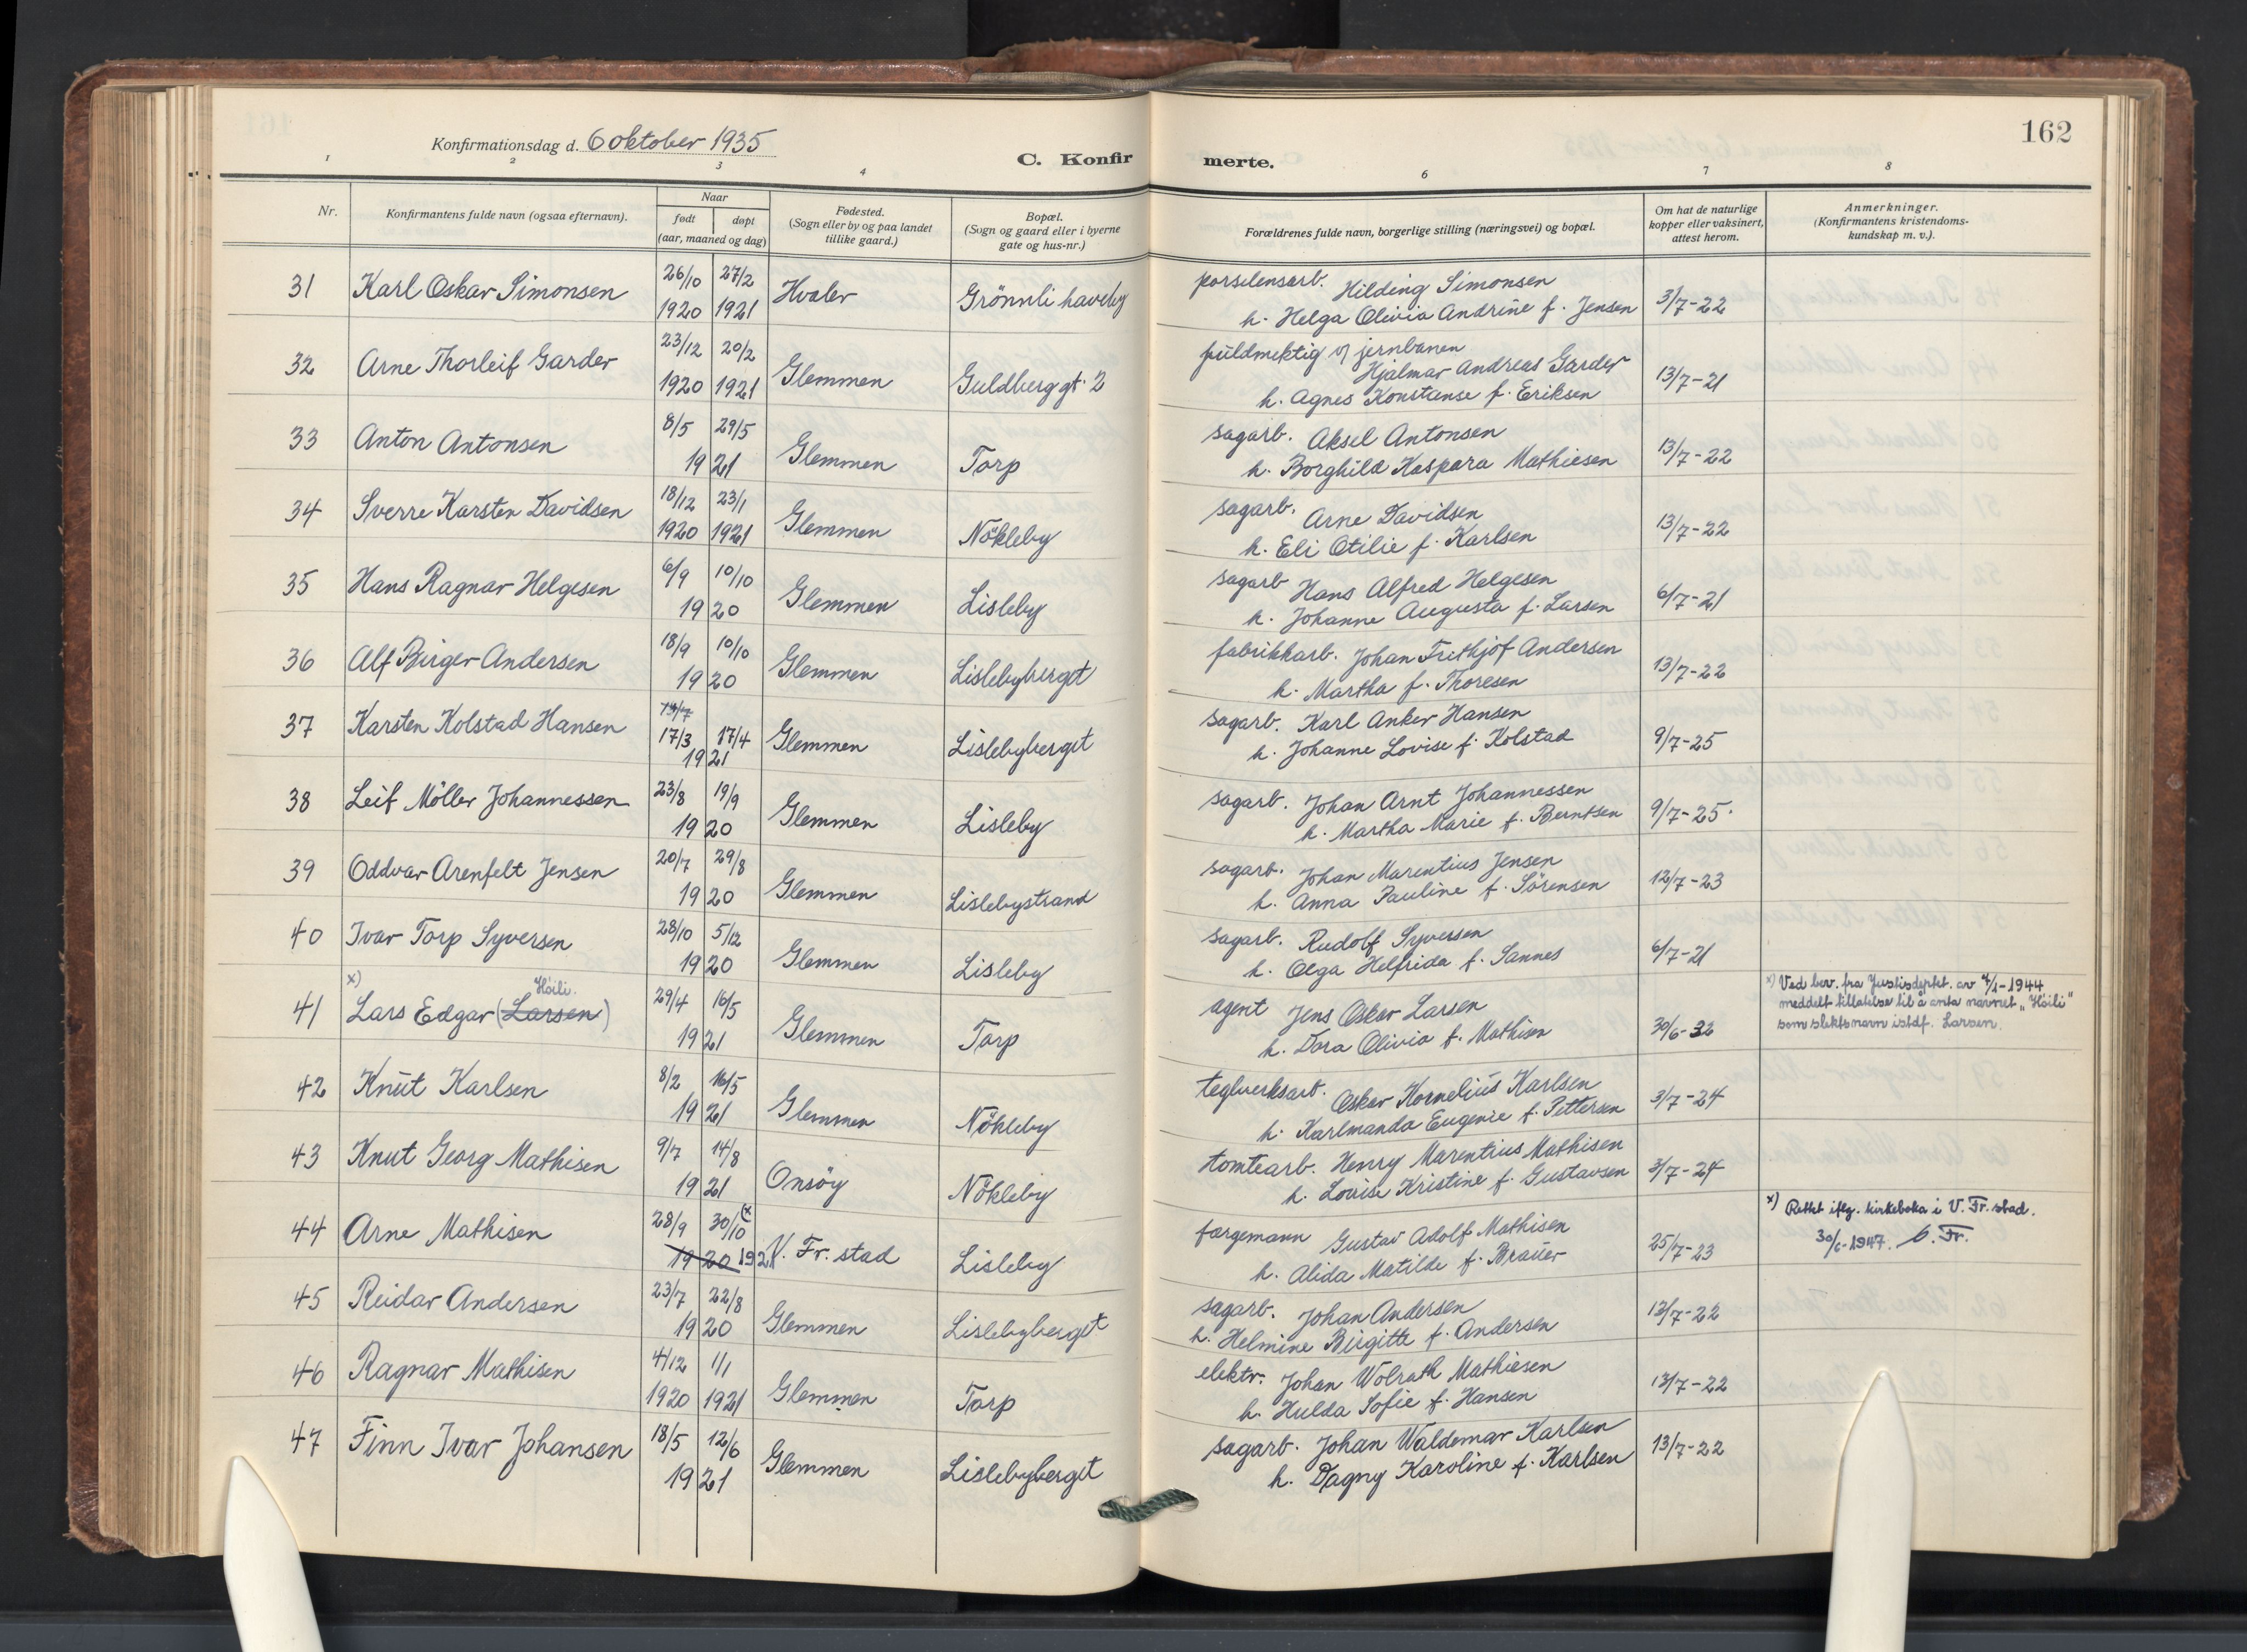 162
Konfirmationsdag d. 6 oktober 1935
C. Konfirmerte.
1 2 3 4 6 7 8
Nr.
Konfirmantens fulde navn (ogsaa efternavn).
Naar
født døpt
(aar, maaned og dag)
Fødested.
(Sogn eller by og paa landet
tillike gaard.)
Bopæl.
(Sogn og gaard eller i byerne
gate og hus-nr.)
Forældrenes fulde navn, borgerlige stilling (næringsvei) og bopæl.
Om hat de naturlige
kopper eller vaksinert,
attest herom.
Anmerkninger.
(Konfirmantens kristendoms-
kundskap m. v.).
31 Karl Oskar Simonsen 26/10 1920 27/2 1921 Hvaler Grönnli haveby porselensarb. Hilding Simonsen
h. Helga Olivia Andrine f. Jensen 3/7-22
32 Arne Thorleif Garder 23/12 1920 20/2 1921 Glemmen Guldberggt. 2 fuldmektig v/ jernbanen
Hjalmar Andreas Garder
h. Agnes Konstanse f. Eriksen 13/7-21
33 Anton Antonsen 8/5 29/5 1921 Glemmen Torp sagarb. Aksel Antonsen
h. Borghild Kaspara Mathiesen 13/7-22
34 Sverre Karsten Davidsen 18/12 1920 23/1 1921 Glemmen Nökleby sagarb. Arne Davidsen
h. Eli Otilie f. Karlsen 13/7-22
35 Hans Ragnar Helgesen 6/9 10/10 1920 Glemmen Lisleby sagarb Hans Alfred Helgesen
h. Johanne Augusta f. Larsen 6/7-21
36 Alf Birger Andersen 18/9 10/10 1920 Glemmen Lislebyberget fabrikkarb. Johan Frithjof Andersen
h. Martha f. Thoresen 13/7-22
37 Karsten Kolstad Hansen 17/3 17/4 1921 Glemmen Lislebyberget sagarb. Karl Anker Hansen
h. Johanne Lovise f. Kolstad 9/7-25
38 Leif Möller Johannessen 23/8 19/9 1920 Glemmen Lisleby sagarb. Johan Arnt Johannessen
h. Martha Marie f. Berntsen 9/7-25.
39 Oddvar Arenfelt Jensen 20/7 29/8 1920 Glemmen Lislebystrand sagarb. Johan Marentius Jensen
h. Anna Pauline f. Sörensen 12/7-23
40 Ivar Torp Syversen 28/10 5/12 1920 Glemmen Lisleby sagarb. Rudolf Syversen
h. Olga Helfrida f. Sannes 6/7-21
x) Høili.
41 Lars Edgar (Larsen) 29/4 16/5 1921 Glemmen Torp agent Jens Oskar Larsen
h. Dora Olivia f. Mathisen 30/6-32
x) Ved bev. fra Justisdeptet. av 4/1-1944
meddelt tillatelse til å anta navnet „Høili"
som slektsnavn istdf. Larsen.
42 Knut Karlsen 8/2 16/5 1921 Glemmen Nökleby teglverksarb. Oskar Kornelius Karlsen
h. Karlmanda Eugenie f. Pettersen 3/7-24
43 Knut Georg Mathisen 9/7 14/8 1921 Onsöy Nökleby tomtearb. Henry Marentius Mathisen
h. Lovise Kristine f. Gustavsen 3/7-24
44 Arne Mathisen 28/9 30/10 (x 1920 1921 V. Fr. stad Lisleby fargemann Gustav Adolf Mathisen
h. Alida Matilde f. Brauer 25/7-23
x) Rettet iflg. kirkeboka i V. Fr. stad.
30/6-1947. Fr.
45 Reidar Andersen 23/7 22/8 1920 Glemmen Lislebyberget sagarb. Johan Andersen
h. Helmine Birgitte f. Andersen 13/7-22
46 Ragnar Mathisen 4/12 1920 1/1 1921 Glemmen Torp elektr. Johan Wolrath Mathiesen
h. Hulda Sofie f. Hansen 13/7-22
47 Finn Ivar Johansen 18/5 12/6 1921 Glemmen Lislebyberget sagarb. Johan Waldemar Karlsen
h. Dagny Karoline f. Karlsen 13/7-22